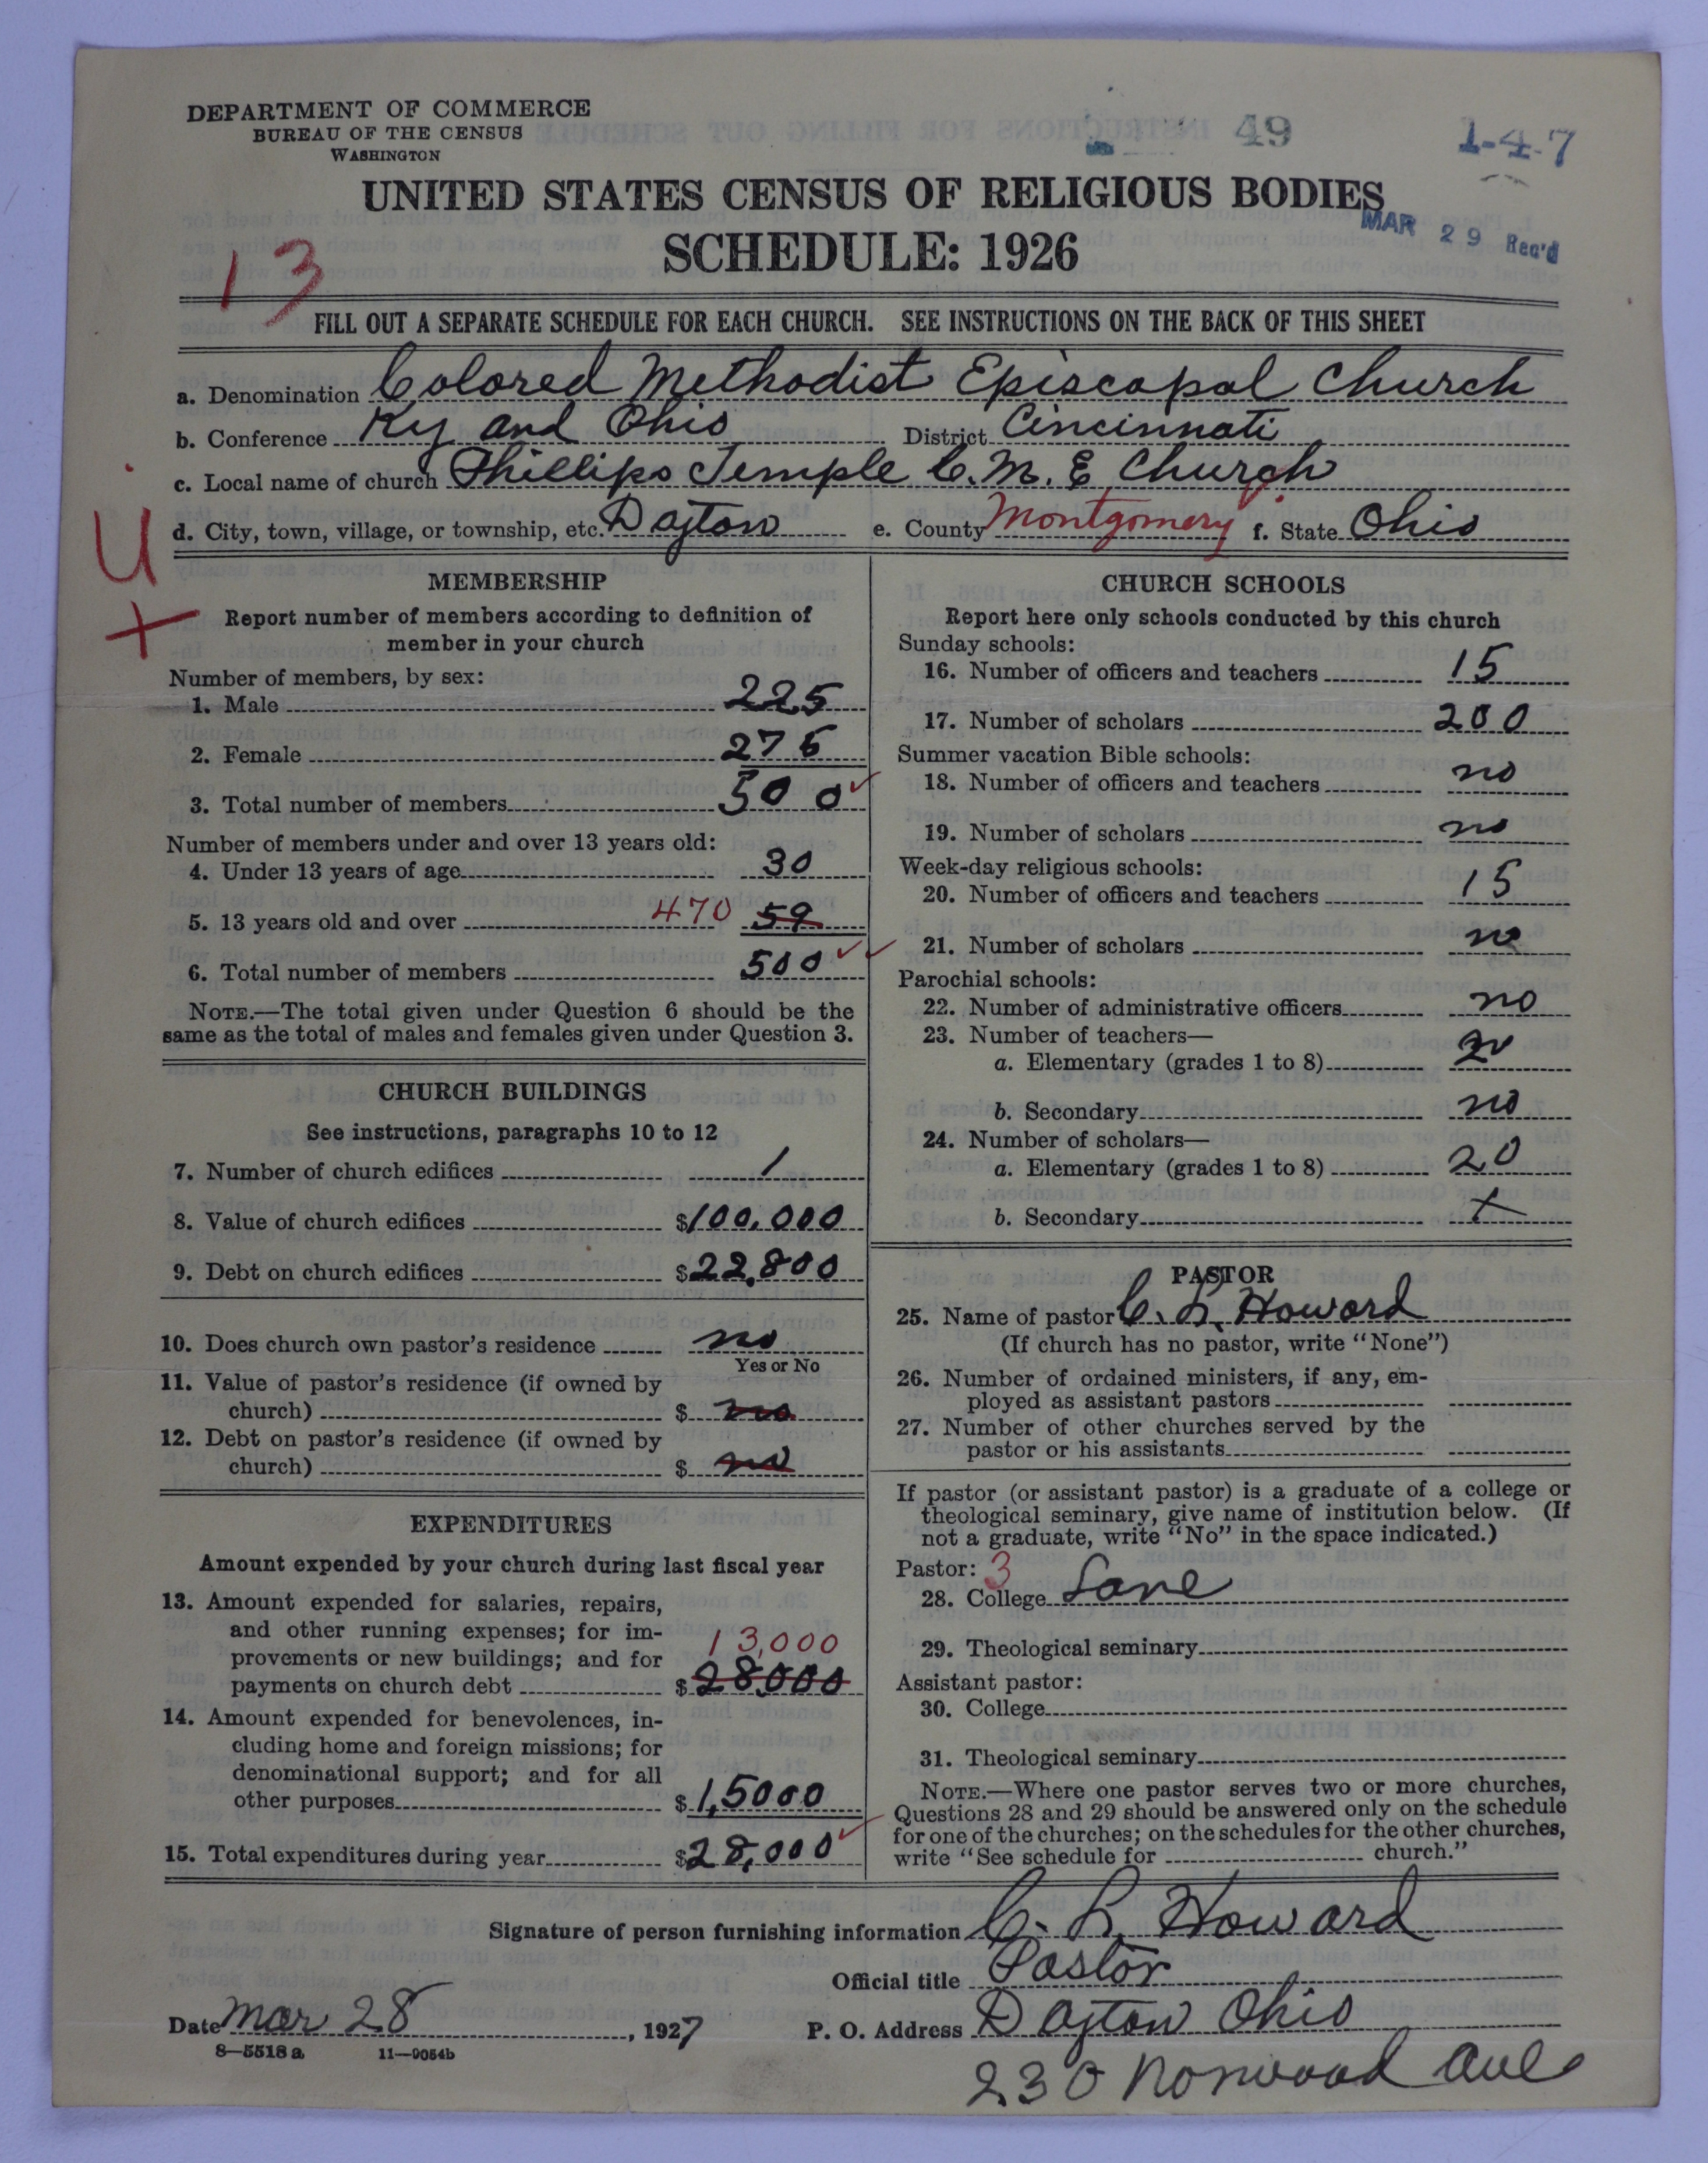 DEPARTMENT OF COMMERCE
BUREAU OF THE CENSUS
WASHINGTON
49
1-4-7
UNITED STATES CENSUS OF RELIGIOUS BODIES
SCHEDULE: 1926
MAR 29 Rec'd
13
FILL OUT A SEPARATE SCHEDULE FOR EACH CHURCH. SEE INSTRUCTIONS ON THE BACK OF THIS SHEET
a. Denomination Colored Methodist Episcopal Church
b. Conference Ky and Ohio District Cincinnati
c. Local name of church Phillips Temple C.M.E. Church
d. City, town, village, or township, etc. Dayton e. County Montgomery f. State Ohio
U
+
MEMBERSHIP
Report number of members according to definition of
member in your church
Number of members, by sex:
1. Male 225
2. Female 275
3. Total number of members 500
Number of members under and over 13 years old:
4. Under 13 years of age 30
5. 13 years old and over 470 59
6. Total number of members 500
NOTE.—The total given under Question 6 should be the
same as the total of males and females given under Question 3.
CHURCH BUILDINGS
See instructions, paragraphs 10 to 12
7. Number of church edifices 1
8. Value of church edifices $100,000
9. Debt on church edifices $22,800
10. Does church own pastor's residence no
Yes or No
11. Value of pastor's residence (if owned by
church) $ no
12. Debt on pastor's residence (if owned by
church) $ no
EXPENDITURES
Amount expended by your church during last fiscal year
13. Amount expended for salaries, repairs,
and other running expenses; for im-
provements or new buildings; and for
13,000
payments on church debt $28,000
14. Amount expended for benevolences, in-
cluding home and foreign missions; for
denominational support; and for all
other purposes $1,5000
15. Total expenditures during year $28,000
CHURCH SCHOOLS
Report here only schools conducted by this church
Sunday schools:
16. Number of officers and teachers 15
17. Number of scholars 200
Summer vacation Bible schools:
18. Number of officers and teachers no
19. Number of scholars no
Week-day religious schools:
20. Number of officers and teachers 15
21. Number of scholars no
Parochial schools:
22. Number of administrative officers no
23. Number of teachers—
a. Elementary (grades 1 to 8)
b. Secondary no
24. Number of scholars—
a. Elementary (grades 1 to 8) 20
b. Secondary x
PASTOR
25. Name of pastor C. L. Howard
(If church has no pastor, write "None")
26. Number of ordained ministers, if any, em-
ployed as assistant pastors
27. Number of other churches served by the
pastor or his assistants
If pastor (or assistant pastor) is a graduate of a college or
theological seminary, give name of institution below. (If
not a graduate, write "No" in the space indicated.)
Pastor: 3
28. College Lane
29. Theological seminary
Assistant pastor:
30. College
31. Theological seminary
NOTE.—Where one pastor serves two or more churches,
Questions 28 and 29 should be answered only on the schedule
for one of the churches; on the schedules for the other churches,
write "See schedule for church."
Signature of person furnishing information C. L. Howard
Official title Pastor
Date Mar 28, 1927 P. O. Address Dayton Ohio
8—5518 a 11—9054b
230 Norwood Ave